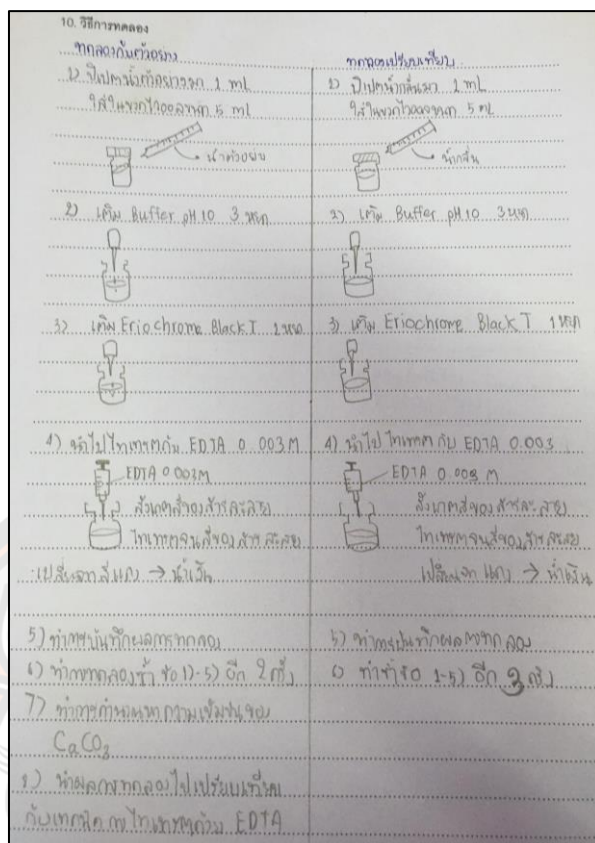 10. วิธีการทดลอง
ทดลองกับตัวอย่าง
1) ปิเปตน้ำตัวอย่างมา 1 mL
ใส่ในขวดไวออลขนาด 5 ml
น้ำตัวอย่าง
2) เติม Buffer pH 10 3 หยด
3) เติม Eriochrome Black T 1 หยด
4) นำไปไทเทรตกับ EDTA 0.003 M
EDTA 0.003 M
สังเกตสีของสารละลาย
ไทเทรตจนสีของสารละลาย
เปลี่ยนจากสีแดง → น้ำเงิน
5) ทำการบันทึกผลการทดลอง
6) ทำการทดลองซ้ำ ข้อ 1)-5) อีก 2 ครั้ง
7) ทำการคำนวณหาความเข้มข้นของ
CaCO3
8) นำผลการทดลองไปเปรียบเทียบ
กับเทคนิคการไทเทรตด้วย EDTA
ทดลองเปรียบเทียบ
1) ปิเปตน้ำกลั่นมา 1 mL
ใส่ในขวดไวออลขนาด 5 ml
น้ำกลั่น
2) เติม Buffer pH 10 3 หยด
3) เติม Eriochrome Black T 1 หยด
4) นำไปไทเทรตกับ EDTA 0.003
EDTA 0.003 M
สังเกตสีของสารละลาย
ไทเทรตจนสีของสารละลาย
เปลี่ยนจาก แดง → น้ำเงิน
5) ทำการบันทึกผลการทดลอง
6) ทำซ้ำข้อ 1-5) อีก 3 ครั้ง